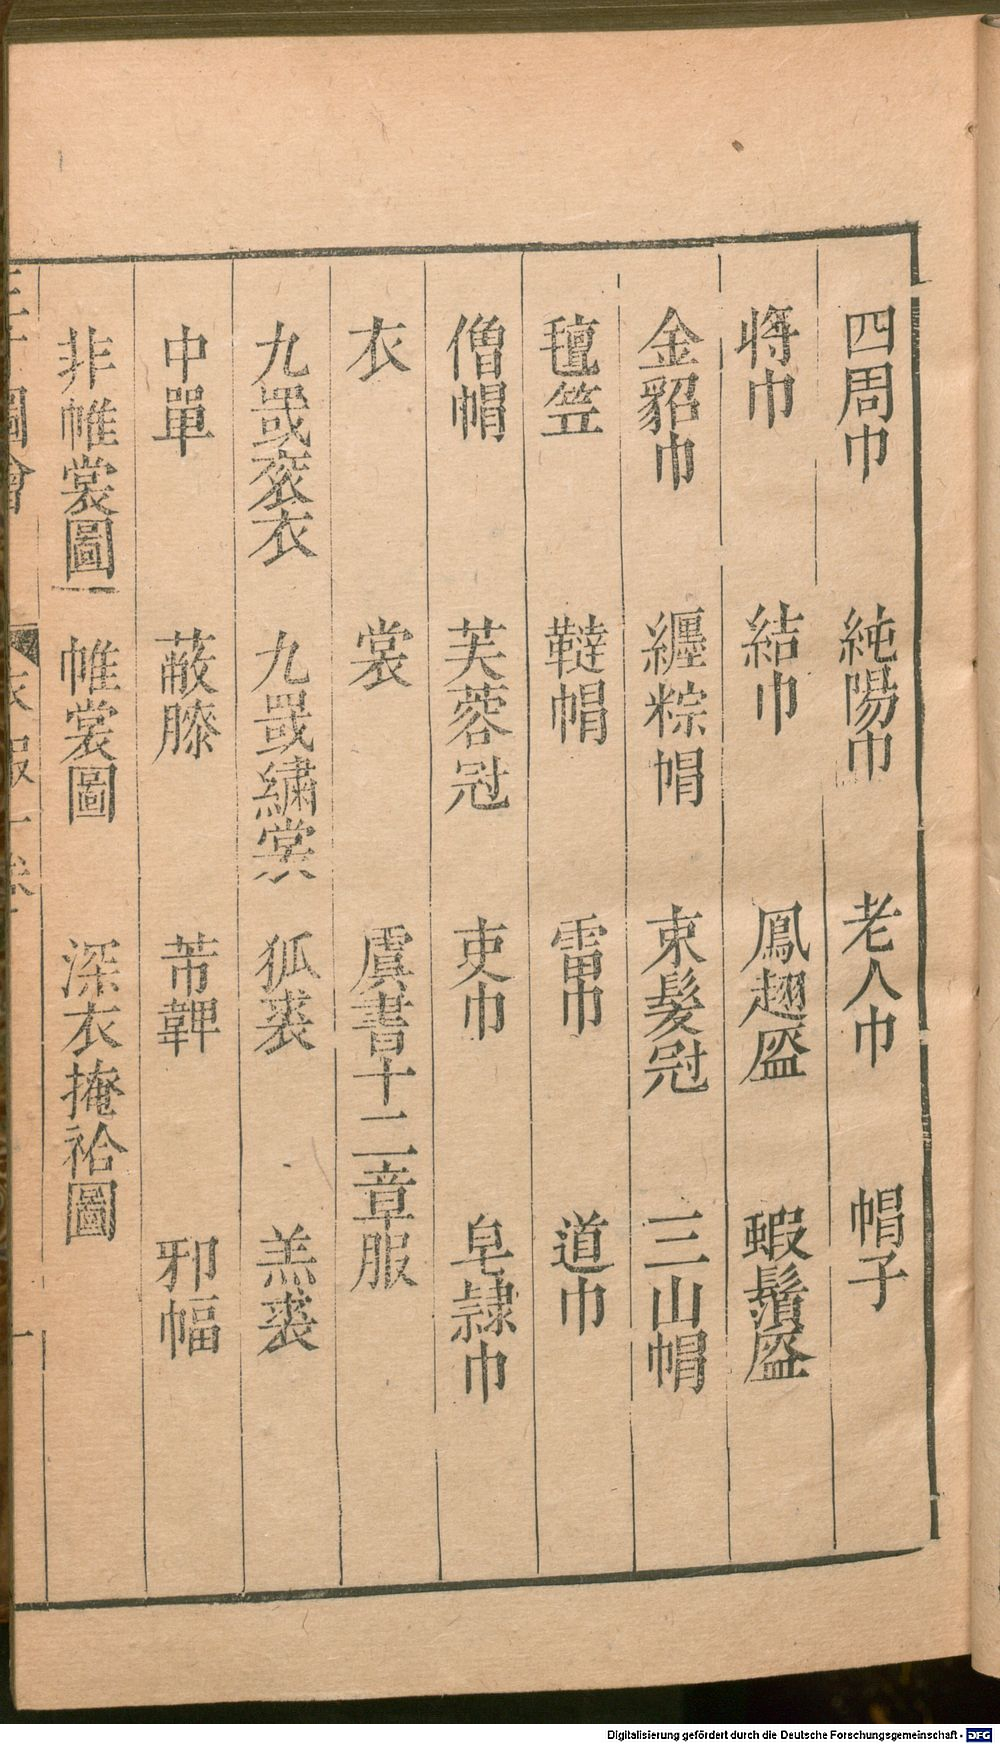 四周巾 純陽巾 老人巾 帽子
將巾 結巾 鳳翅盔 蝦鬚盔
金貂巾 纏粽帽 束髮冠 三山帽
氊笠 韃帽 雷巾 道巾
僧帽 芙蓉冠 吏巾 皂隷巾
衣 裳 虞書十二章服
九罭衮衣 九罭繡裳 狐裘 羔裘
中單 蔽膝 芾韠 邪幅
非帷裳圖 帷裳圖 深衣掩袷圖
圖會 衣服一卷 一
Digitalisierung gefördert durch die Deutsche Forschungsgemeinschaft - DFG